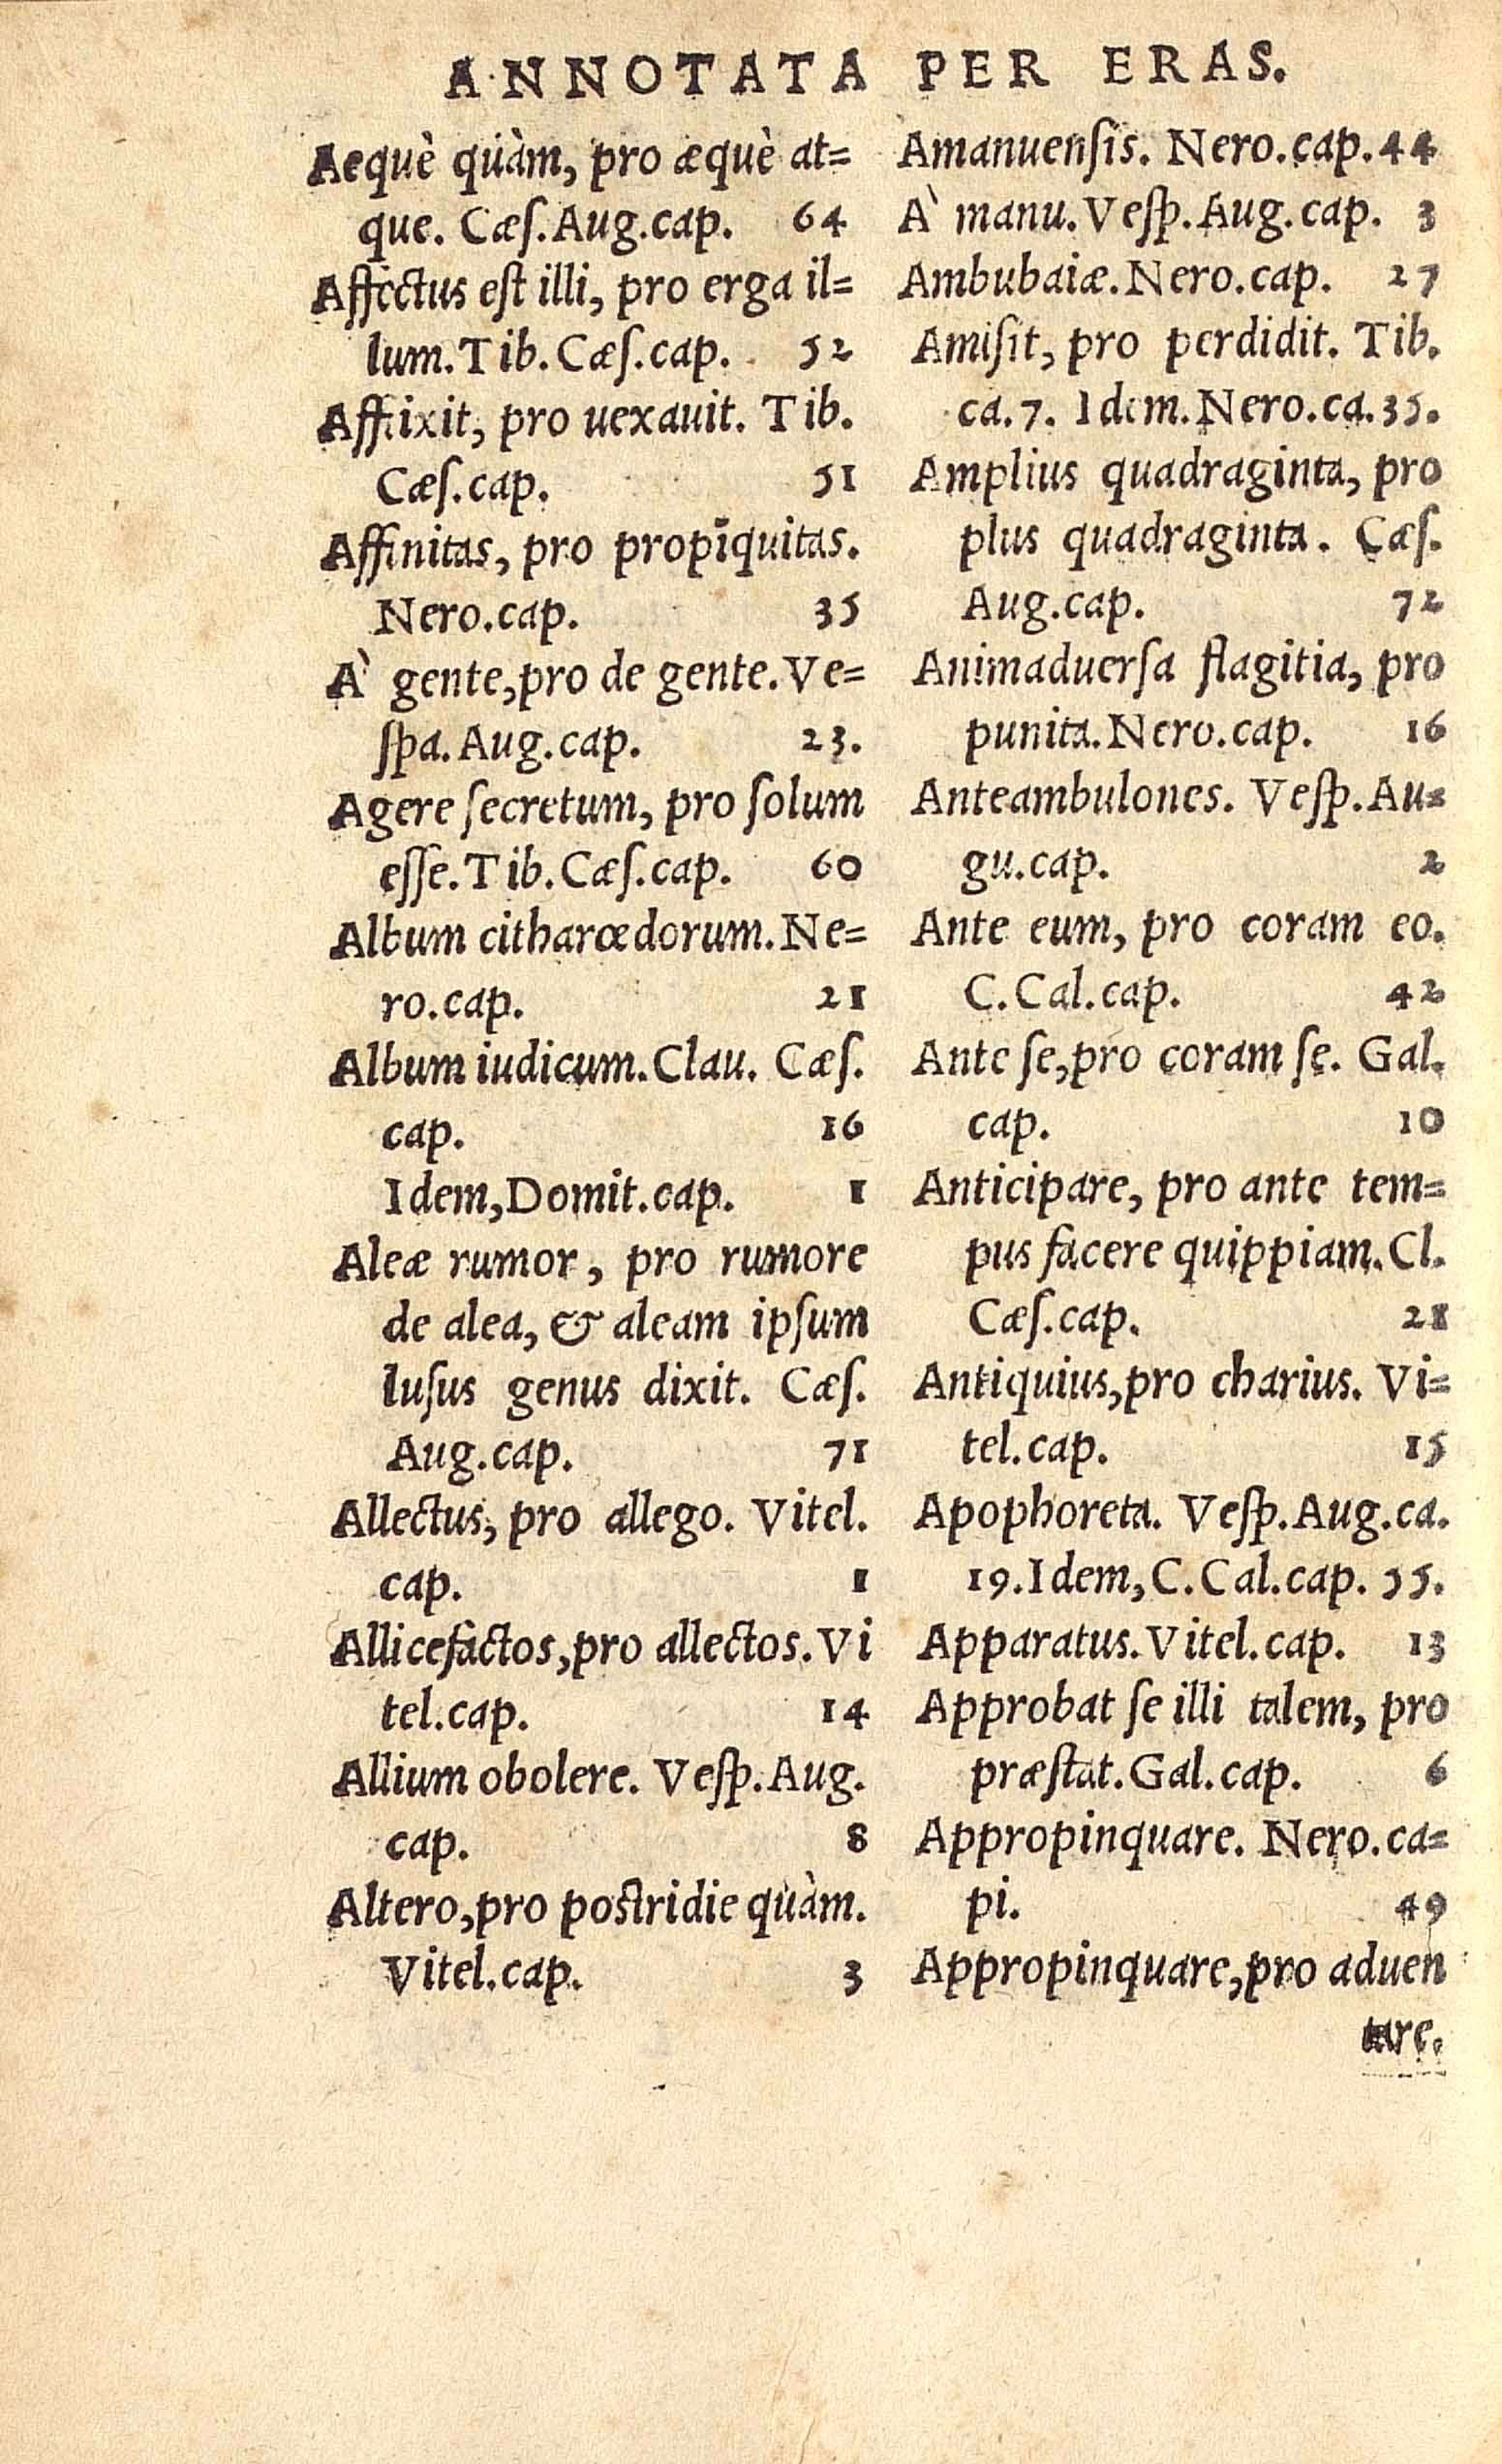 ANNOTATA PER ERAS.
Aequè quàm, pro æquè at=
que. Cæſ.Aug.cap. 64
Affectus eſt illi, pro erga il=
lum.Tib.Cæſ.cap. 52
Afflixit, pro uexauit. Tib.
Cæſ.cap. 51
Affinitas, pro propīquitas.
Nero.cap. 35
À gente,pro de gente.Ve=
ſpa.Aug.cap. 23.
Agere ſecretum, pro ſolum
eſſe.Tib.Cæſ.cap. 60
Album citharœdorum.Ne=
ro.cap. 21
Album iudicum.Clau. Cæſ.
cap. 16
Idem,Domit.cap. 1
Aleæ rumor, pro rumore
de alea, & aleam ipſum
luſus genus dixit. Cæſ.
Aug.cap. 71
Allectus, pro allego. Vitel.
cap. 1
Allicefactos,pro allectos.Vi
tel.cap. 14
Allium obolere. Veſp.Aug.
cap. 8
Altero,pro poſtridie quàm.
Vitel.cap. 3
Amanuenſis. Nero.cap.44
À manu.Veſp.Aug.cap. 3
Ambubaiæ.Nero.cap. 27
Amiſit, pro perdidit. Tib.
ca.7. Idem.Nero.ca.35.
Amplius quadraginta, pro
plus quadraginta. Cæſ.
Aug.cap. 72
Animaduerſa flagitia, pro
punita.Nero.cap. 16
Anteambulones. Veſp.Au=
gu.cap. 2
Ante eum, pro coram eo.
C.Cal.cap. 42
Ante ſe,pro coram ſe. Gal.
cap. 10
Anticipare, pro ante tem=
pus facere quippiam.Cl.
Cæſ.cap. 21
Antiquius,pro charius. Vi=
tel.cap. 15
Apophoreta. Veſp.Aug.ca.
19.Idem,C.Cal.cap. 55.
Apparatus.Vitel.cap. 13
Approbat ſe illi talem, pro
præſtat.Gal.cap. 6
Appropinquare. Nero.ca=
pi. 49
Appropinquare,pro aduen
tare.